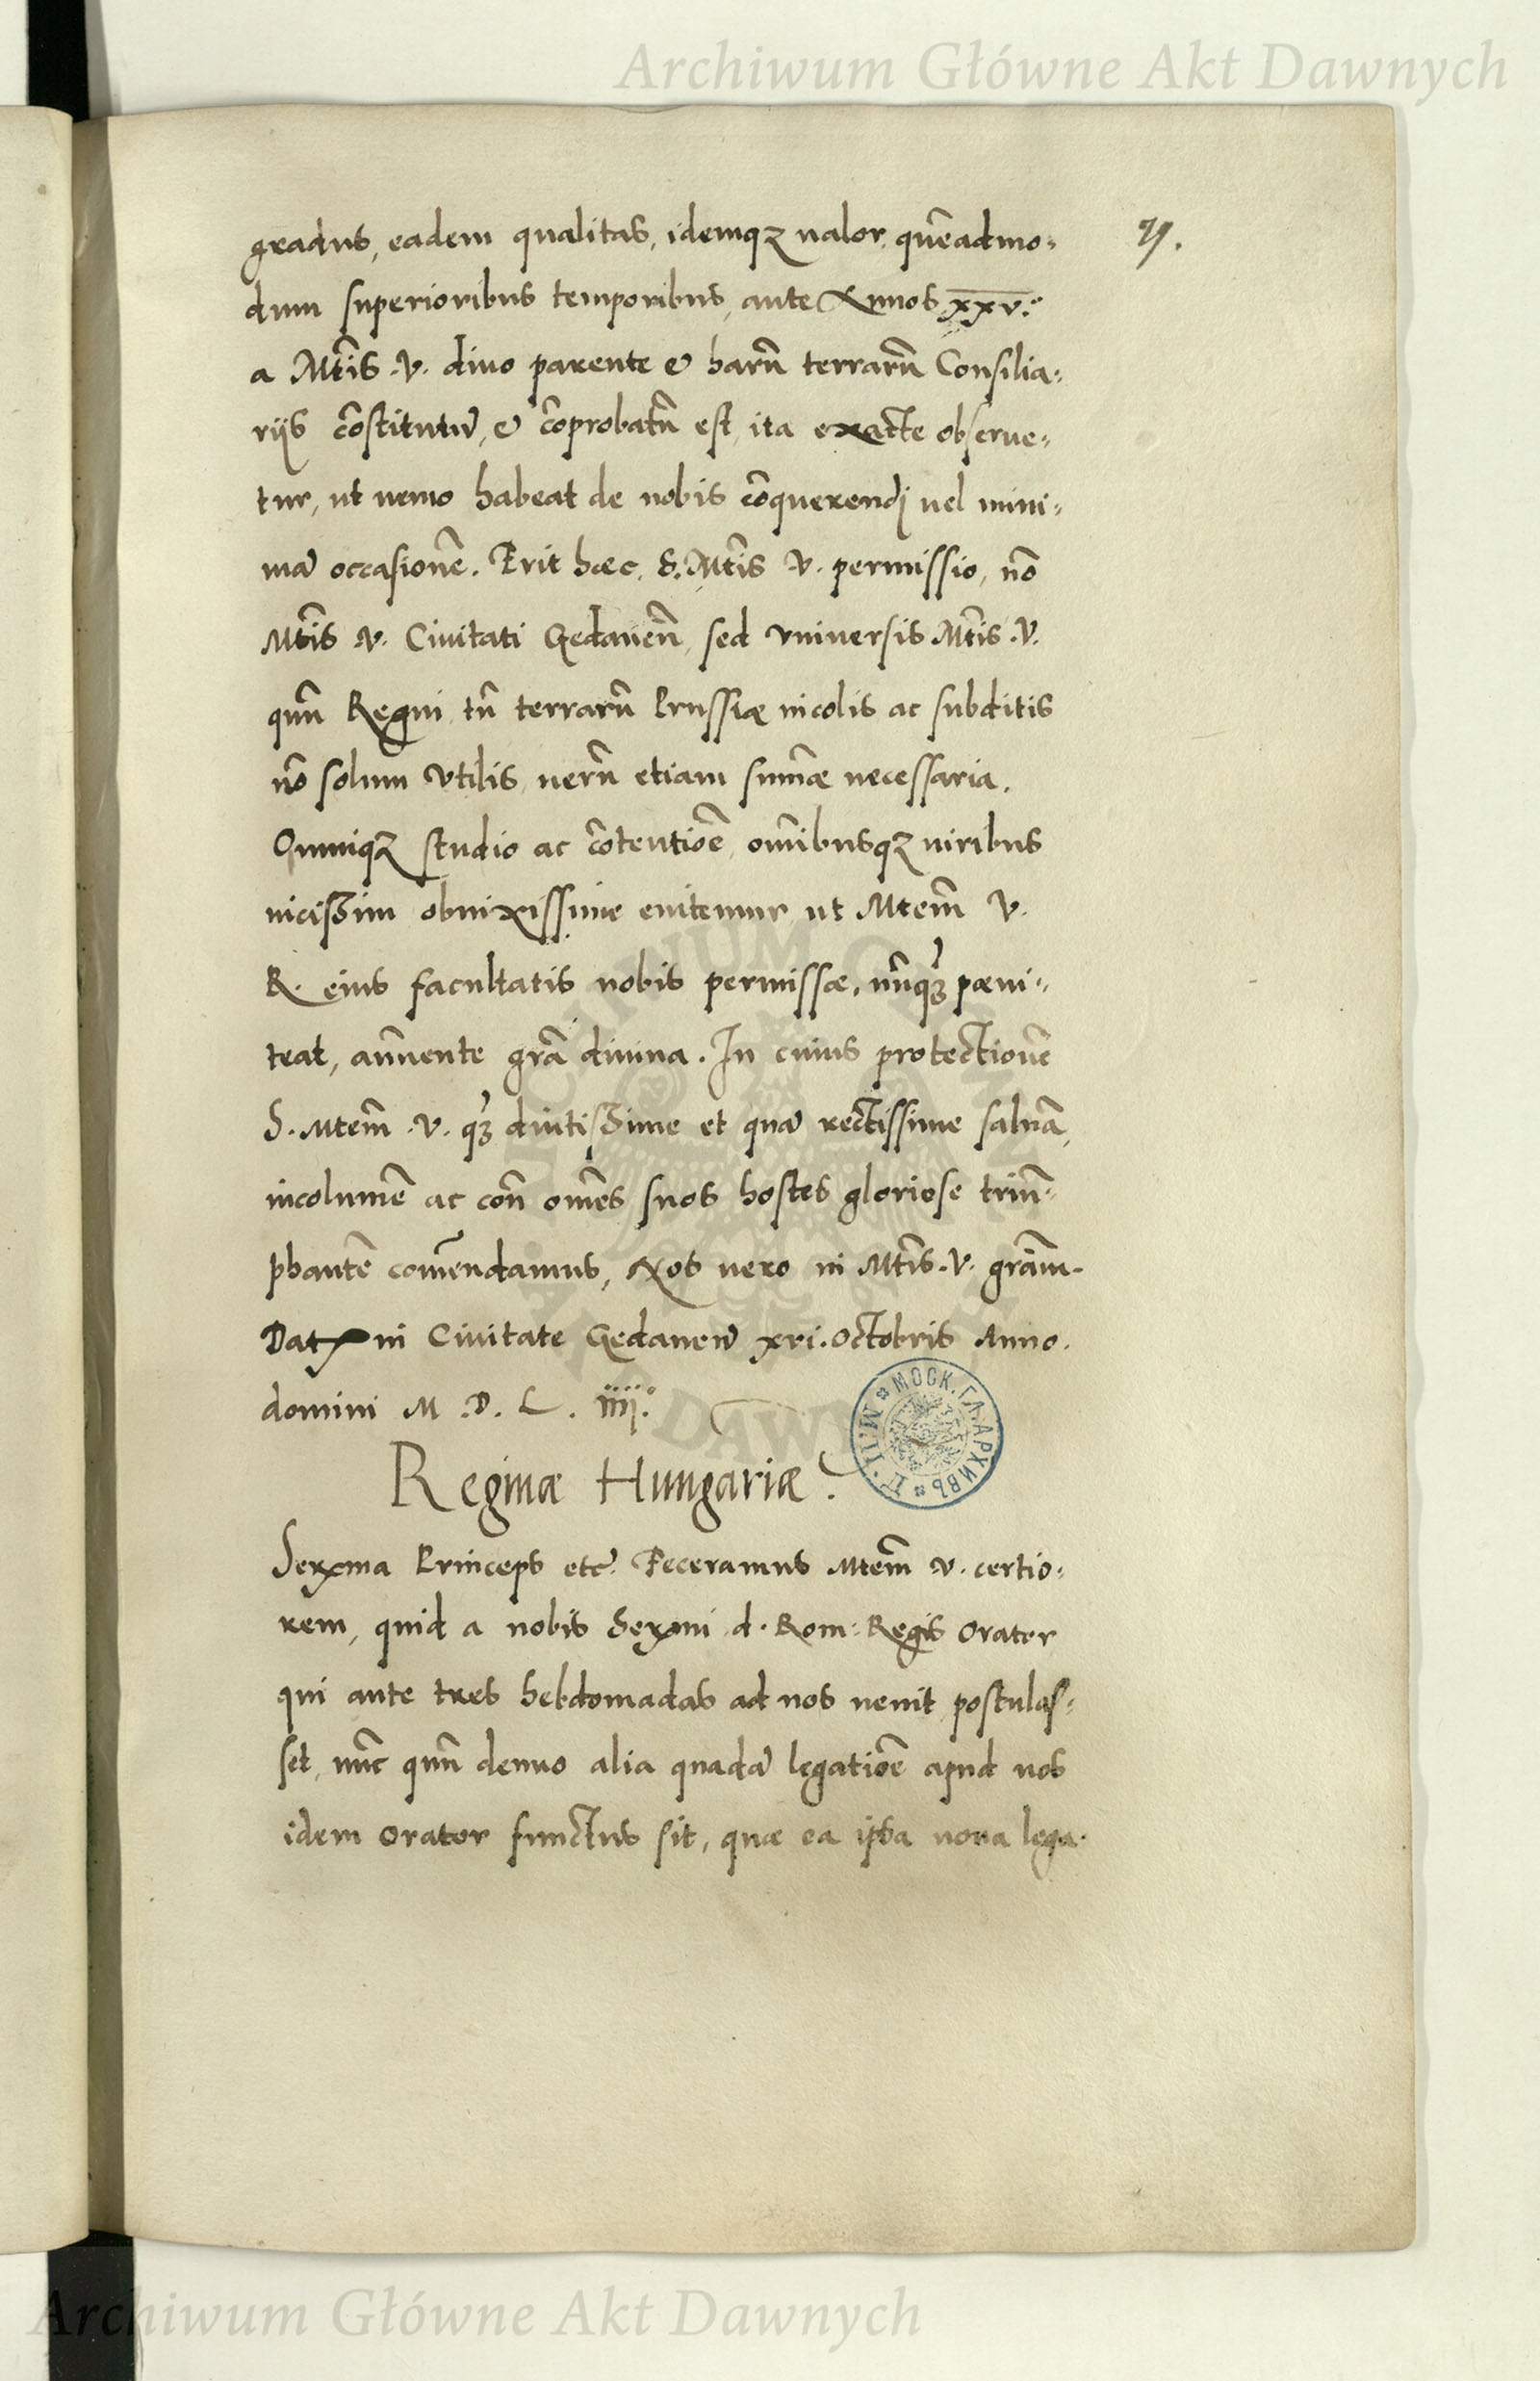 Archiwum Główne Akt Dawnych
71.
gradus, eadem qualitas, idemqꝫ ualor, quēadmo⸗
dum superioribus temporibus, ante Annos xxv.º
a Mt̄is .V. diuo parente & harū terrarū Consilia⸗
riis cōstitutū, & cōprobatū est, ita exacte obserue⸗
tur, ut nemo habeat de nobis cōquerendj uel mini⸗
mā occasionē. Erit hæc. S. Mt̄is V. permissio, nō
Mt̄is V. Ciuitati Gedaneñ, sed vniuersis Mt̄is .V.
quū Regni, tū terrarū Prussiæ incolis ac subditis
nō solum vtilis, uerū etiam sum̄æ necessaria.
Omniqꝫ studio ac cōtentiōe, om̄ibusqꝫ uiribus
uicißim obnixissime enitemur, ut Mtem̄ V.
R. eius facultatis nobis permissæ, nūqꝫ pæni⸗
teat, añuente gr̄a diuina. In cuius protectionē
S. Mtem̄ .V. qꝫ diutißime et quā rectissime saluā,
incolumē ac coñ om̄es suos hostes gloriose trium̄⸗
phantē com̄endamus, Nos uero in Mt̄is .V. gr̄am.
Datꝝ in Ciuitate Gedaneñ xvi. Octobris Anno.
domini M .D. L. iiij.º
МОСК. ГЛ. АРХИВЪ
Reginæ Hungariæ.
Serxma Princeps etc̄. Feceramus Mtem̄ v. certio⸗
rem, quid a nobis Serxmi d. Rom: Regis Orator
qui ante tres hebdomadas ad nos uenit, postulas⸗
set, nūc quū denuo alia quadā legatiōe apud nos
idem Orator functus sit, quæ ea ipsa noua lega⸗
Archiwum Główne Akt Dawnych